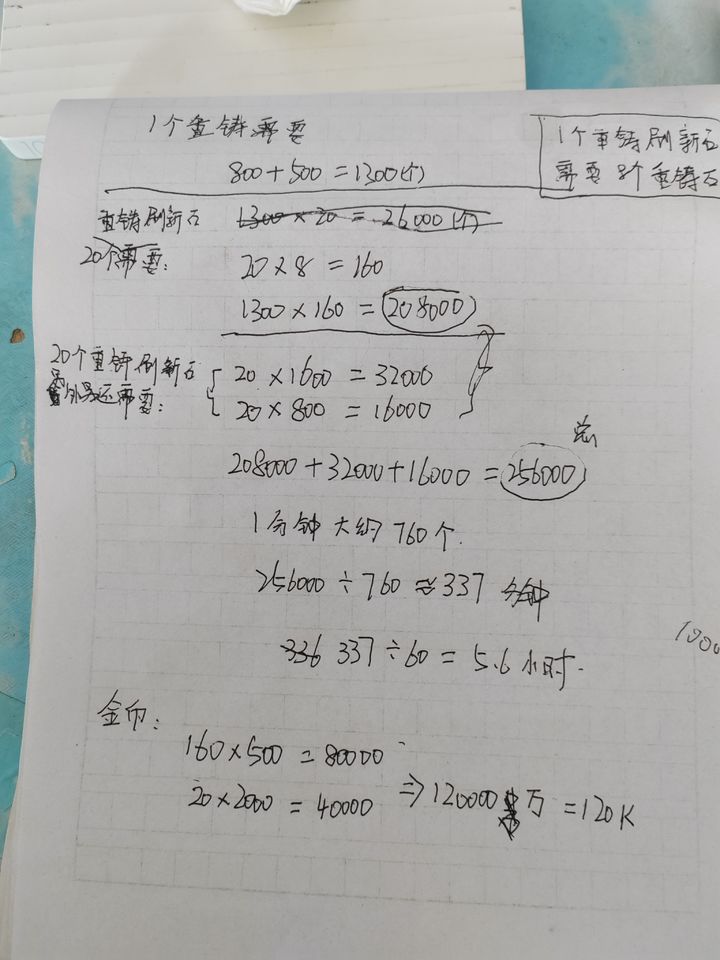 1个重铸需要
800+500=1300(个)
1个重铸刷新石
需要 8个重铸石
重铸刷新石 1300×20=26000(个)
20个需要:
20×8=160
1300×160=208000
20个重铸刷新石
另外还需要:
20×1600=32000
20×800=16000
总
208000+32000+16000=256000
1分钟大约760个.
256000÷760≈337 分钟
336 337÷60=5.6小时.
1000
金币:
160×500=80000
20×2000=40000 ⇒120000 万=120K